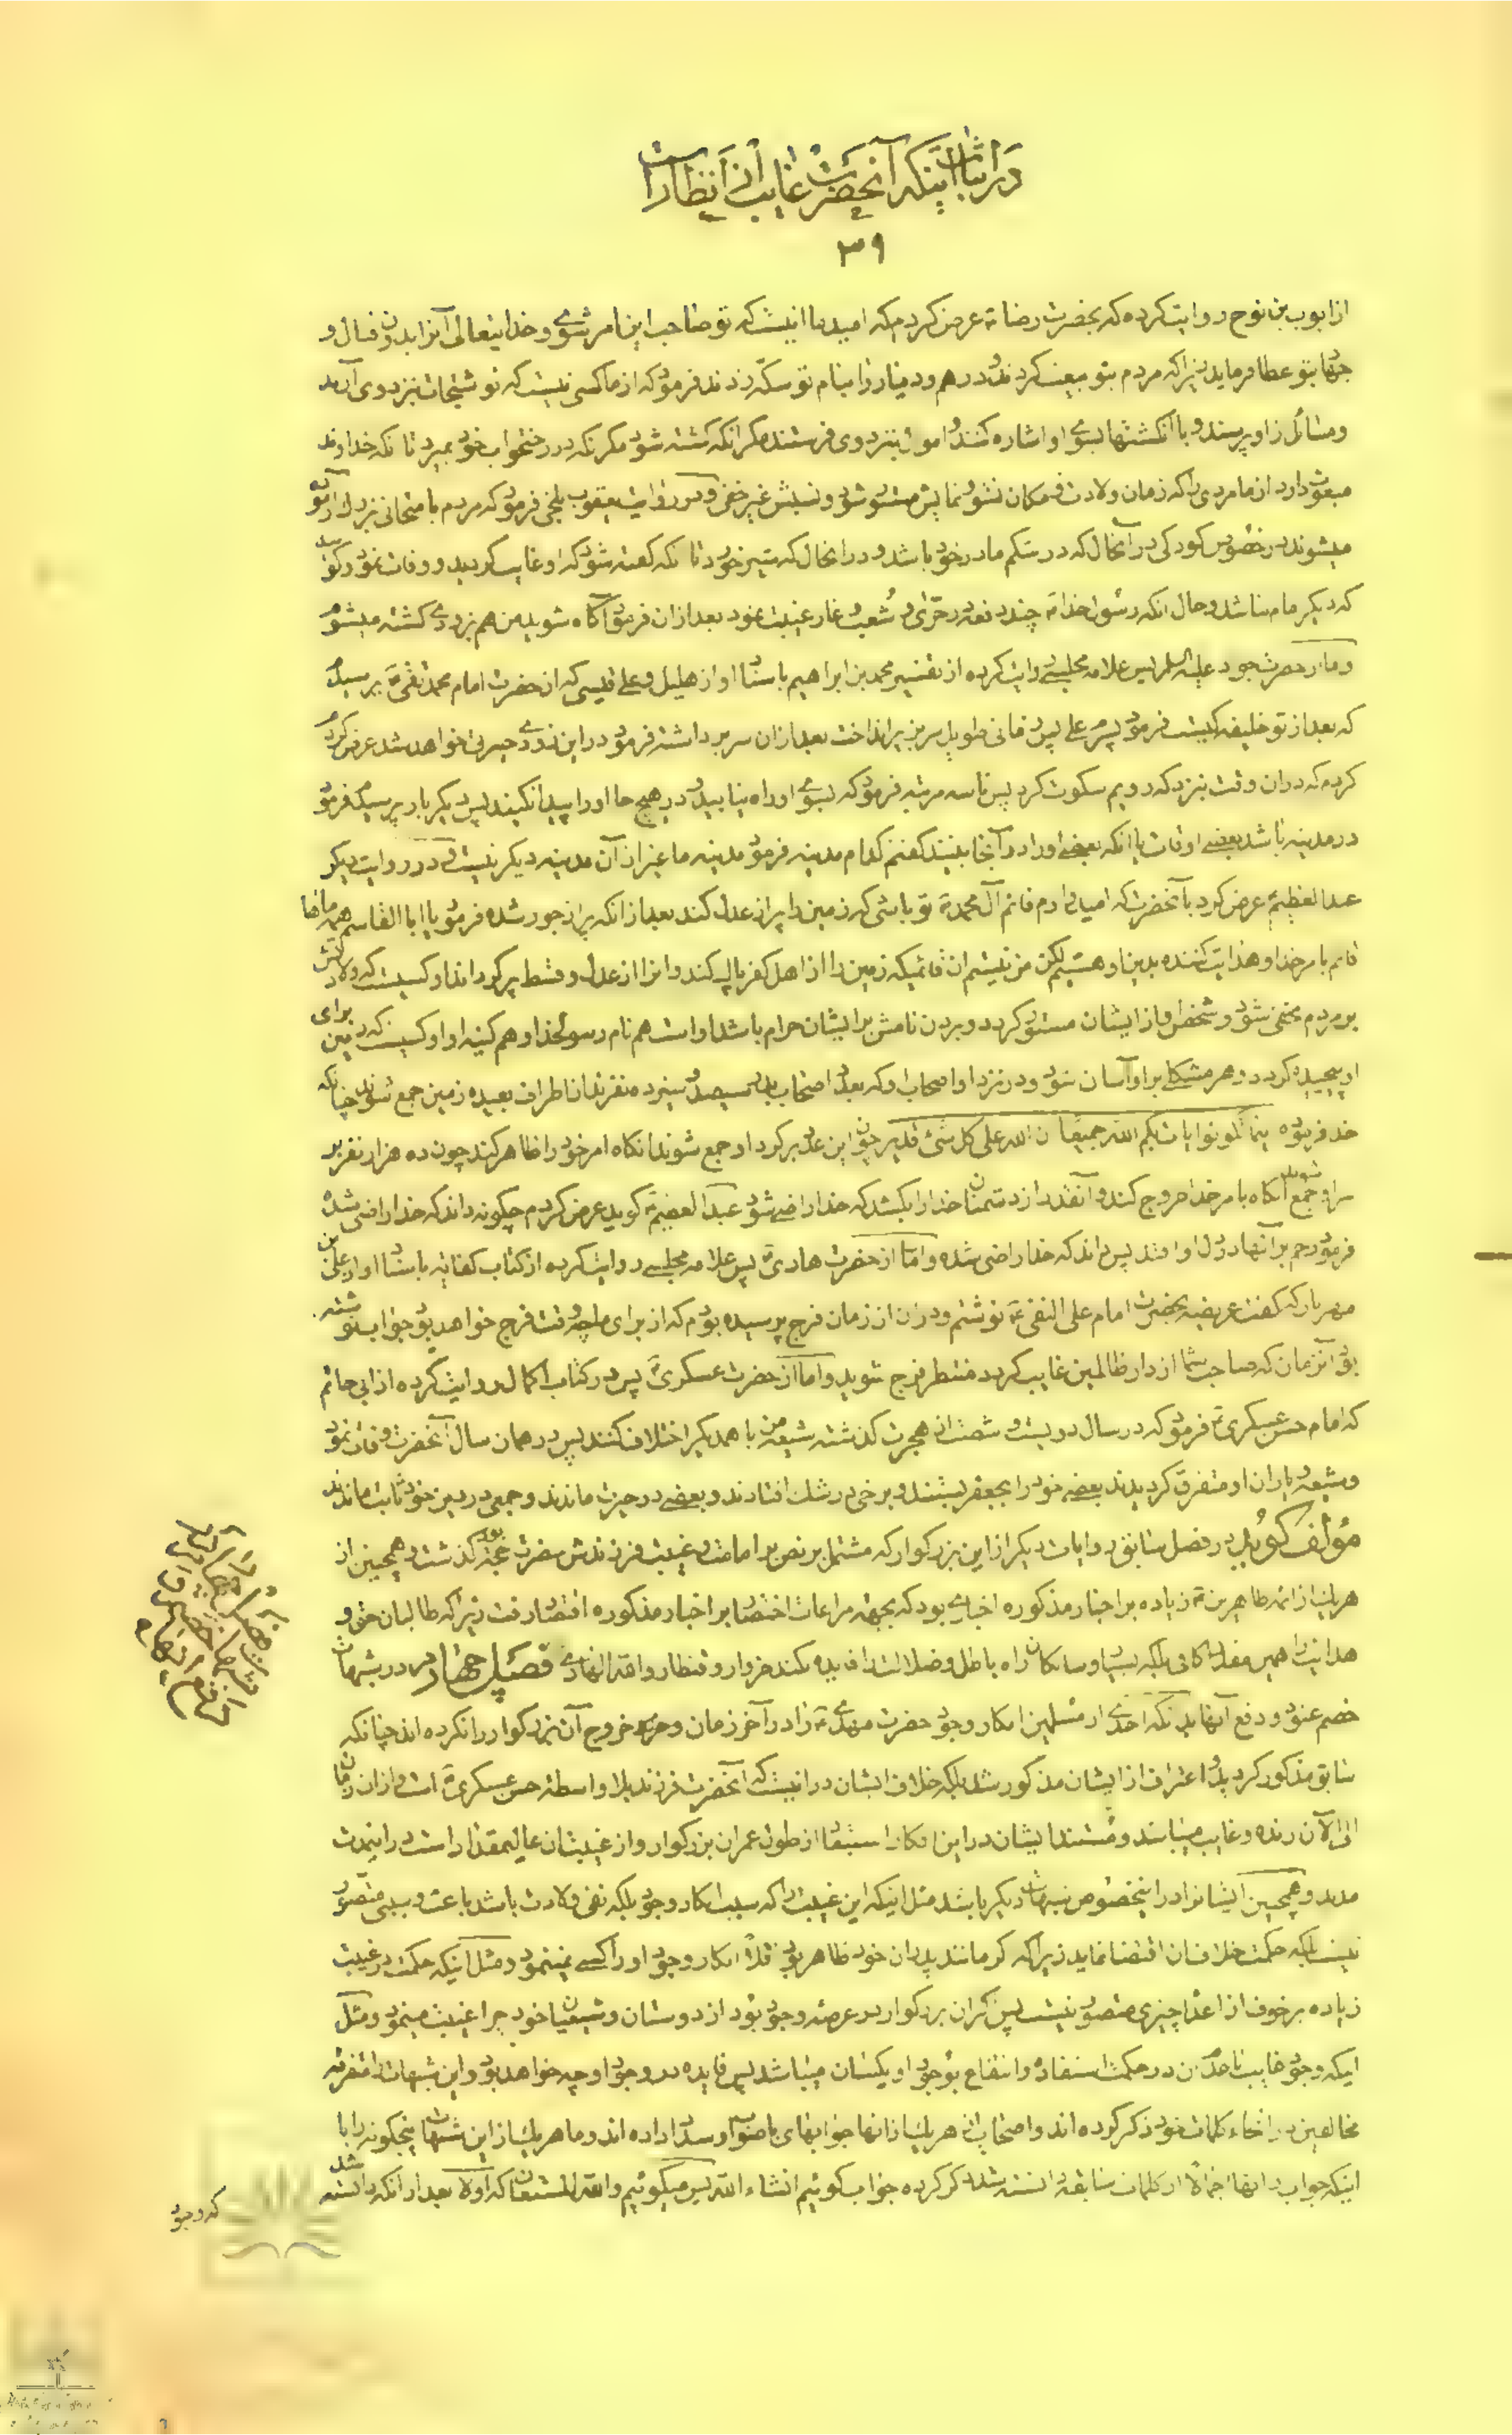 در اثبات اینکه آنحضرت غایب از انظار است
۳۹
از ایوب بن نوح روایت کرده که بحضرت رضا ع عرض کردم که امید ما انیست که تو صاحب این امر شوی و خدایتعالی آنرا بدون قتال و
بتو عطا فرماید زیرا که مردم بتو بیعت کردند و درهم و دینار را بنام تو سکّه زدند فرمود که از ما کسی نیست که نوشتجات نزد وی آرند
و مسائل از او پرسند و با انگشتها بسوی او اشاره کنند و اموال نزد وی فرستند مگر انکه کشته شود مگر انکه در رختخواب خود بمیرد تا انکه خداوند
مبعوث دارد از ما مردی را که زمان ولادت و مکان نشو و نمایش مستور شود و نسبش غیر خفی و در روایت یعقوب بلخی فرمود که مردم بامتحانی نزدک ازموده
میشوند در خصوص کودکی در آنحال که در شکم مادر خود باشد و در انحال که شیر خورد تا انکه گفته شود که او غایب کردید و وفات نمود و کویند
که دیگر امام نباشد و حال انکه رسول خدا ص چند دفعه در حرّی و شعب و غار غیبت نمود بعد از ان فرمود آگاه شوید من هم بزودی کشته میشوم
و اما از حضرت جواد علیه السلم پس علامه مجلسی روایت کرده از تفسیر محمد بن ابراهیم باسناد او از هلیل و علی قیسی که از حضرت امام محمد تقی ع پرسید
که بعد از تو خلیفه کیست فرمود پسرم علی پس زمانی طویل سر بزیر انداخت بعد از ان سر برداشته فرمود در این زودی حیرتی خواهد شد عرض
کردم که در ان وقت بنزد که رویم سکوت کرد پس تا سه مرتبه فرمود که بسوی او راه نیابید و در هیچ جا او را پیدا نکنید پس دیگر بار پرسید فرمود
در مدینه باشد بعضی اوقات یا انکه بعضی او را در آنجا بینند گفتم کدام مدینه فرمود مدینه ما غیر از آن مدینه دیگر نیست و در روایت دیگر
عبد العظیم ع عرض کرد بآنحضرت که امید دارم قائم آل محمد ع تو باشی که زمین را پر از عدل کند بعد از انکه پر از جور شده فرمود یا ابا القاسم همه ماها
قائم بامر خدا و هدایت کننده بدین او هستیم لکن من نیستم ان قائمیکه زمین را از اهل کفر پاک کند و انرا از عدل و قسط پر گرداند او کسیست که ولادتش
بر مردم مخفی شود و شخص او از ایشان مستور گردد و بردن نامش بر ایشان حرام باشد او است هم نام رسول خدا و هم کنیه او و او کسیست که زمین برای
او پیچیده گردد و هر مشکلی بر او آسان شود و در نزد او اصحاب او که بعدد اصحاب بدر سیصد و سیزده نفرند از اطراف بعیده زمین جمع شوند چنانکه
خدا فرموده اینما تکونوا یات بکم الله جمیعا ان الله علی کل شئ قدیر چون این عدد بر گرد او جمع شوند انگاه امر خود را ظاهر کند چون ده هزار نفر بر
سر او جمع شوند انگاه بامر خدا خروج کند و آنقدر از دشمنان خدا را بکشد که خدا راضی شود عبد العظیم ع کوید عرض کردم چگونه داند که خدا راضی شده
فرمود رحم بر آنها در دل او افتد پس داند که خدا راضی شده و امّا از حضرت هادی ع پس علامه مجلسی روایت کرده از کتاب کفایه باسناد او از علی بن
مهزیار که گفت عریضه بحضرت امام علی النقی ع نوشتم و در ان از زمان فرج پرسیده بودم که از برای ما چه وقت فرج خواهد بود جواب نوشته
بود آنزمان که صاحب شما از دار ظالمین غایب گردد منتظر فرج شوید و اما از حضرت عسکری ع پس در کتاب اکمال روایت کرده از ابی حاتم
که امام حسن عسکری ع فرمود که در سال دویست و شصت از هجرت گذشته شیعه من با همدیگر اختلاف کنند پس در همان سال آنحضرت وفات نمود
و شیعه و یاران او متفرق گردیدند بعضی خود را بجعفر بستند و برخی در شک افتادند و بعضی در حیرت ماندند و جمعی در دین خود ثابت ماندند
مؤلف گوید در فصل سابق روایات دیگر از این بزرگوار که مشتمل بر نص بر امامت و غیبت فرزندش حضرت حجة بود گذشت و همچنین از
هر یک از ائمه طاهرین ع زیاده بر اخبار مذکوره اخباری بود که بجهة مراعات اختصار بر اخبار مذکوره اقتصار رفت زیرا که طالبان حق و
هدایت را همین مقدار کافی بلکه بسیار و سالکان راه باطل و ضلالت را فایده نکند خروار و قنطار و الله الهادی فصل چهارم در شبهات
خصم عنود و دفع آنها بدانکه احدی از مسلمین انکار وجود حضرت مهدی ع را در آخر زمان و خروج آن بزرگوار را نکرده اند چنانکه
سابق مذکور گردید و اعتراف از ایشان مذکور شد بلکه خلاف ایشان در انیست که آنحضرت فرزند بلا واسطه حسن عسکری ع است و از ان زمان
الی الآن زنده و غایب میباشد و مستند ایشان در این انکار استبعاد از طول عمر ان بزرگوار و از غیبت ان عالیمقدار است در اینمدت
مدید و همچنین ایشانرا در اینخصوص شبهات دیگر باشد مثل اینکه این غیبت را که سبب انکار وجود بلکه نفی ولادت باشد باعث و سببی متصور
نیست بلکه حکمت خلاف ان اقتضا نماید زیرا که گر مانند پدران خود ظاهر بود قدر انکار وجود او را کسی نمینمود و مثل اینکه حکمت در غیبت
زیاده بر خوف از اعدا چیزی متصور نیست پس گر ان بزرگوار در عرصه وجود بود از دوستان و شیعیان خود چرا غیبت مینمود و مثل
اینکه وجود غایب با عدم ان در حکمت استفاده و انتفاع بوجود او یکسان میباشد پس فایده در وجود او چه خواهد بود و این شبهات را متفرقه
مخالفین در انحاء کلمات خود ذکر کرده اند و اصحاب از هر یک از انها جوابهای با صواب و سداد داده اند و ما هر یک از این شبهات پنجگونه را با
اینکه جواب انها اجمالا از کلمات سابقه دانسته شد ذکر کرده جواب گوئیم انشاء الله پس میگوئیم و الله المستعان که اولا بعد از انکه دانسته شد
که وجود